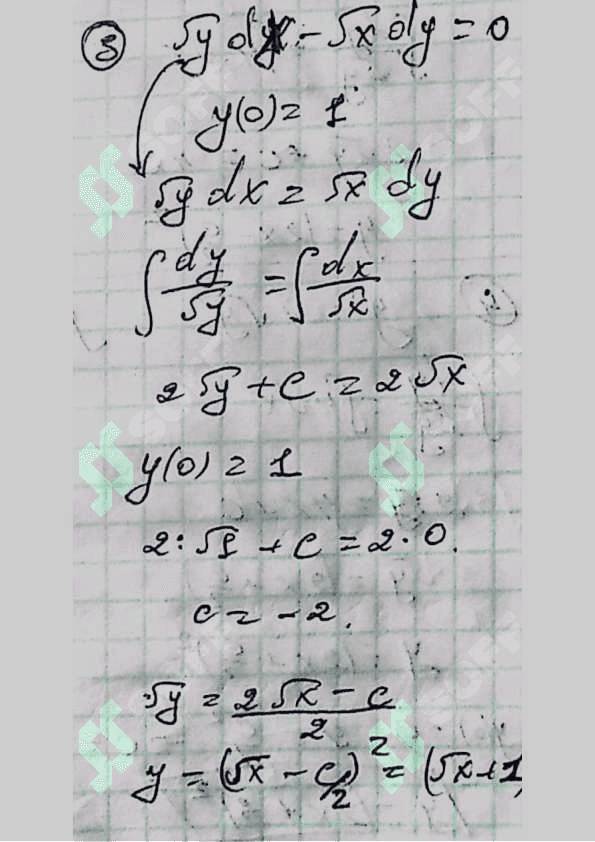 ③ √y dx - √x dy = 0
y(0) = 1
√y dx = √x dy
∫ dy/√y = ∫ dx/√x
2√y + C = 2√x
y(0) = 1
2·√1 + C = 2·0.
C = -2.
√y = (2√x - C)/2
y = (√x - C/2)² = (√x + 1